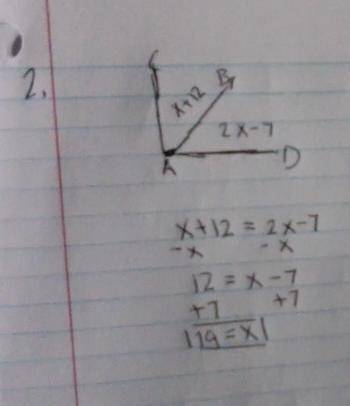 2.
C
B
x+12
2x-7
A
D
x+12 = 2x-7
-x -x
12 = x -7
+7 +7
19 = x